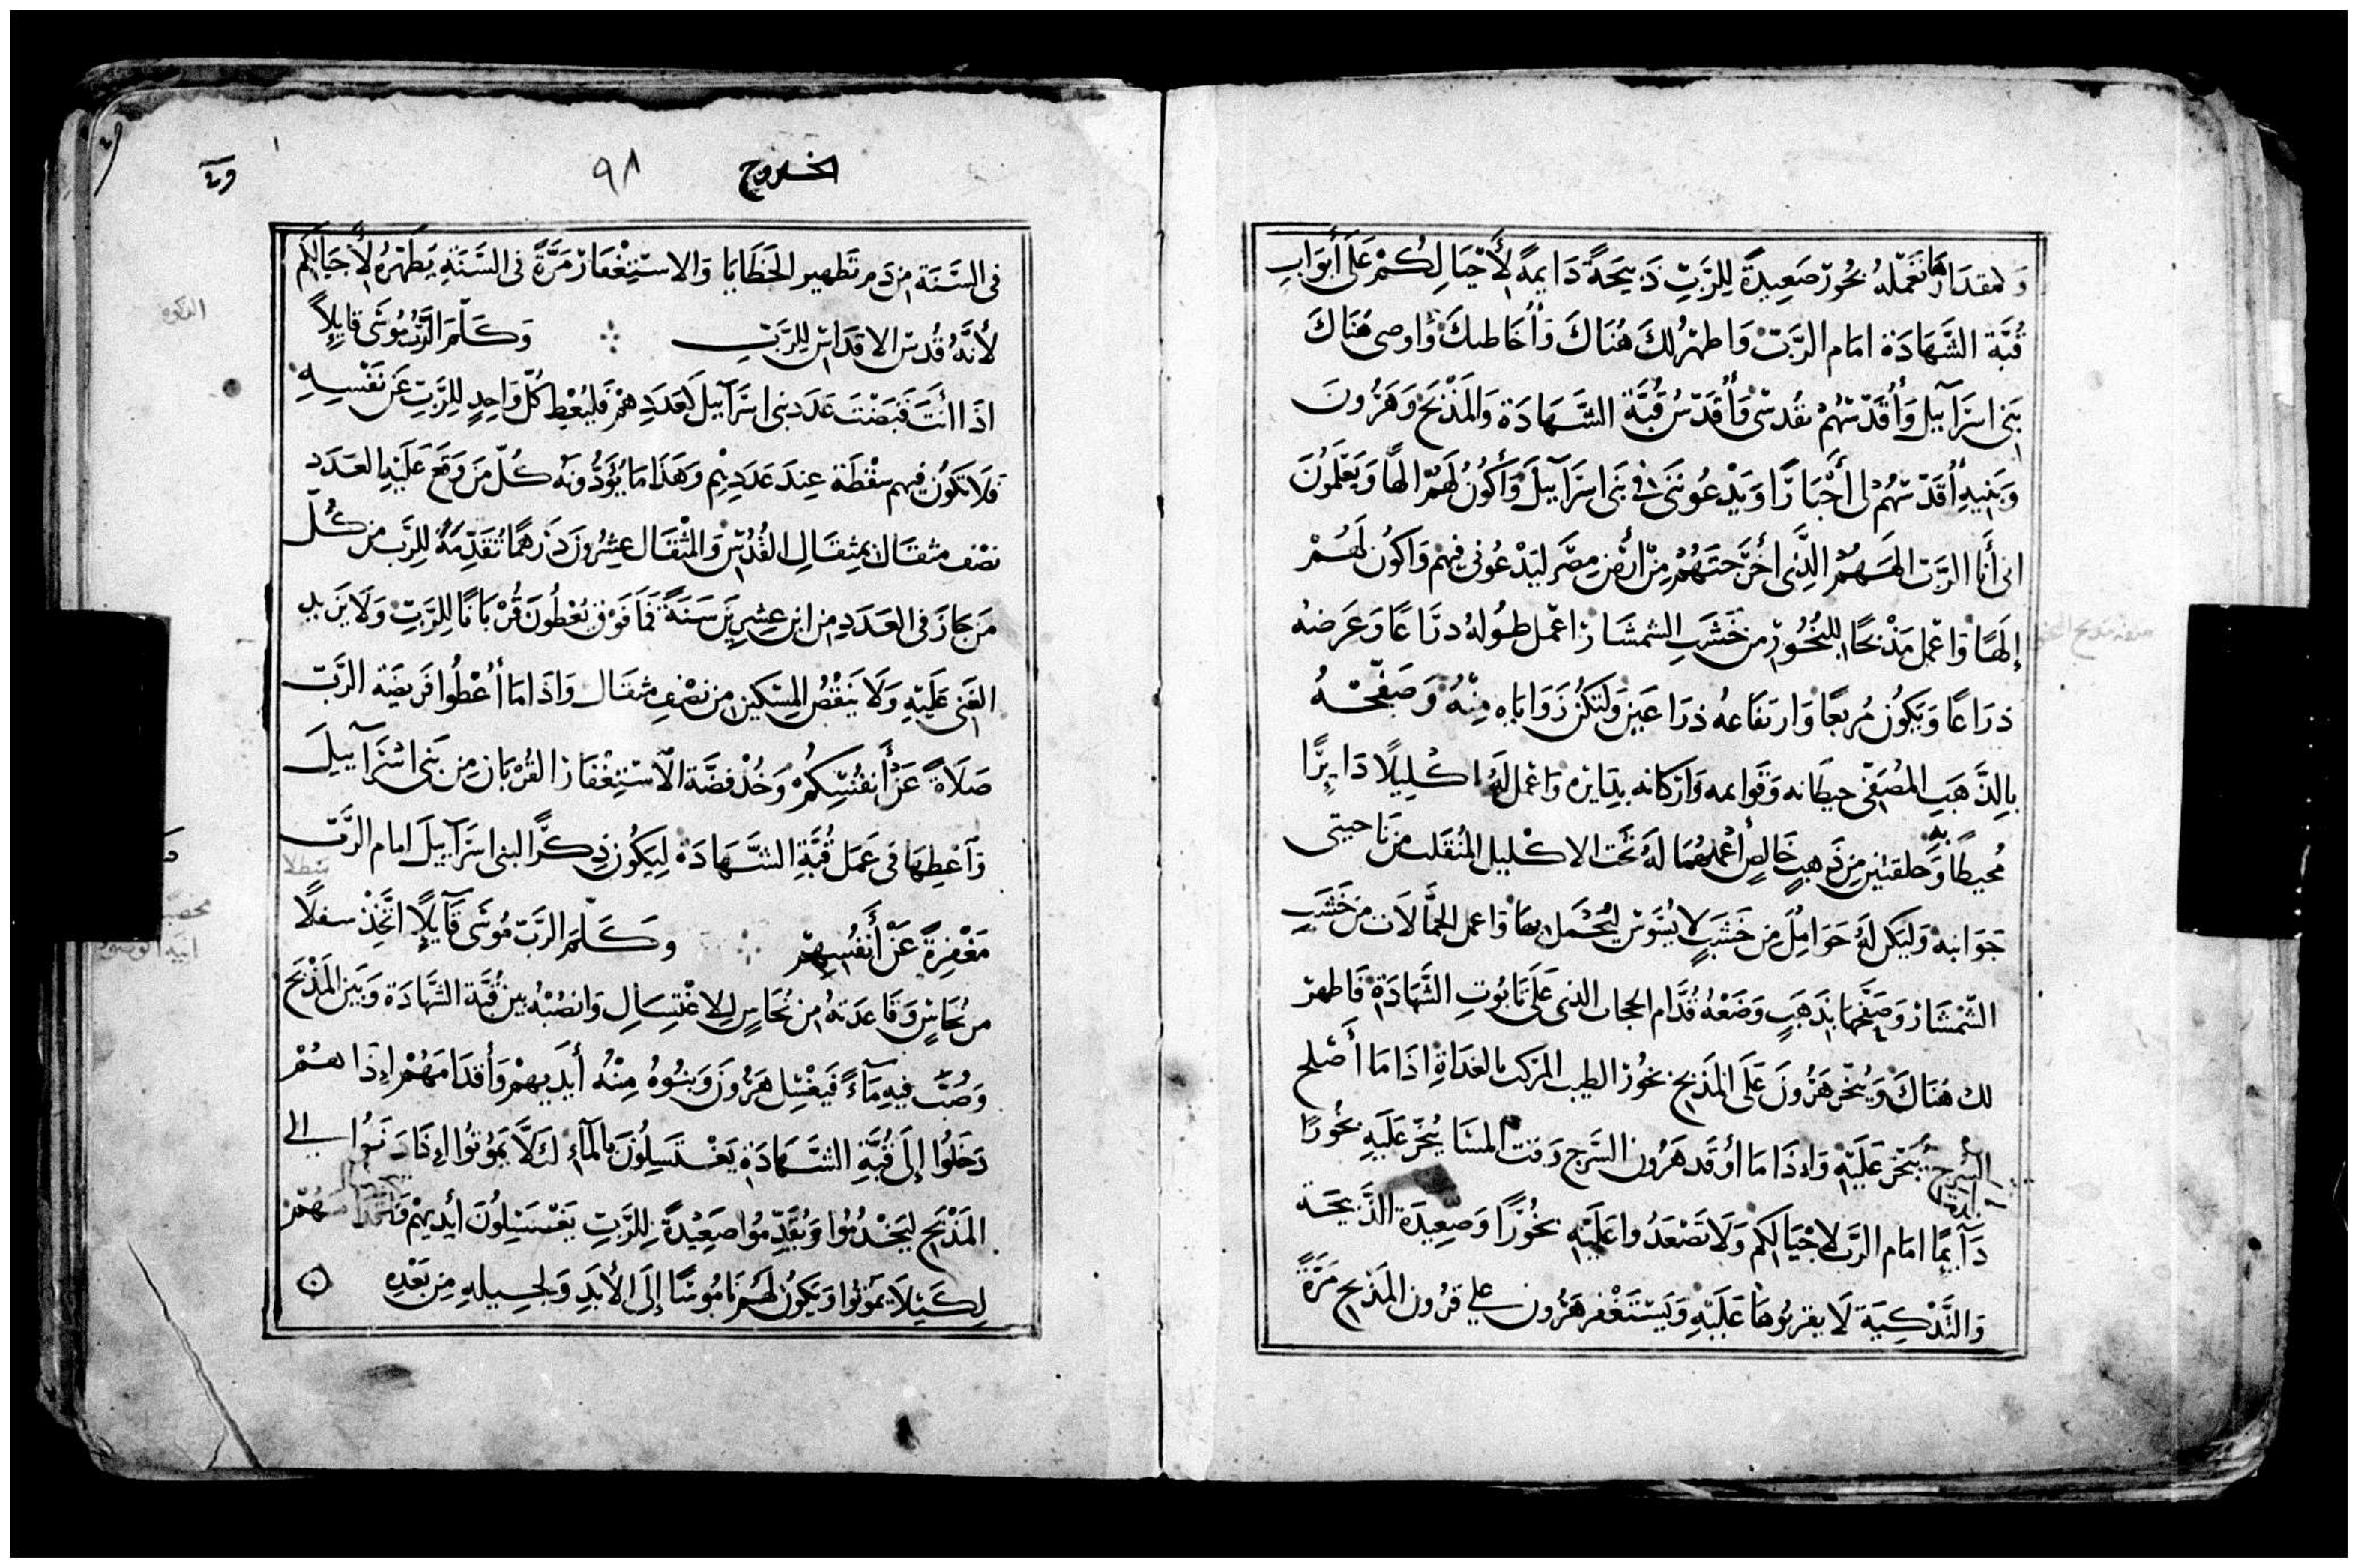 وَلمقدَارهَا نَعْمَلهُ بخُورْ صَعِيدَةً لِلرَّبِّ ذَبيَحَةً دَايمةً لأَجْيَالِكُمْ عَلَى أَبْوَابِ
قُبَّة الشَّهَادَة امَام الرَّبّ وَاطهرُ لكَ هُنَاكَ وَأُخَاطبكَ وَاوصى هُنَاكَ
بَنى اسرَآييل وَأُقَدّسَهُمْ بقُدسْى وَأُقَدّسُ قُبَّة الشَّهَادَة وَالمَذْبَحْ وَهَرُونَ
وَبَنِيهِ أُقَدّسَهُمْ لى أَحْبَارًا وَيَدْعُونَنى فى بَنى اسرَآييلَ وَأَكُونُ لَهُمْ الهًا وَيَعْلَمُونَ
انى أَنَا الرَّبّ الهَهُمْ الَّذِى أَخرَجتَهُمْ مِنْ أَرْض مِصْرَ ليَدْعُونى فِيهمْ وَاكُون لَهُمْ
إِلَهًا وَاعْمل مَذْبَحًا للبُخُورْ من خَشَبِ الشمشَارْ اعْمل طُولهُ ذرَاعًا وَعَرضهُ
ذرَاعًا وَيَكُون مُربعًا وَارتفَاعهُ ذرَاعَين وَلتَكُن زَوَايَاه مِنْهُ وَصَفّحْهُ
بِالذَّهَبِ المُصَفَّى حيطَانه وَقَوايمه وَاركانه بدَايرهِ وَاعْمل لَهُ اكْلِيلًا دَايِرًا
مُحيطًا بهِ وَحلقتيْنِ مِن ذَهبٍ خَالِصٍ أعْملهمَا لَهُ تَحْت الاكْليل المُنقَلب من نَاحيتى
جَوَانبهْ وَليَكن لَهُ حَوَامِلُ مِن خَشَبٍ لا يُسَوّسْ ليُحْمَل بهَا وَاعمل الحمَّالَات من خَشَبِ
الشّمْشَارْ وَصَفّحهَا بذَهَبٍ وَضَعْهُ قُدَّام الحجاب الذى عَلَى تَابُوتِ الشَّهَادَةِ فَاطهرْ
لك هُنَاكَ وَيُبَخّر هَرُونَ عَلَى المَذْبح بخُورْ الطيب المركب بالغدَاةِ اذَا مَا أَصْلح
السُرج يُبَخّر عَلَيْهِ وَاذَا مَا أوْقَد هَرُون السَرج وَقت المسَا يُبَخّر عَلَيهِ بخُورًا
دَآيمًا امَام الرَّب لاجْيَالكم وَلَا تَصْعَدُوا عَلَيْهِ بخُورًا وَصَعِيدَة الذَّبيحَة
وَالتَّذْكِيَة لَا يقربُوهَا عَلَيْهِ وَيَسْتَغْفر هَرُون على قرُون المَذْبح مَرَّةً
الخروج
٩٨
فى السَّنَة من دَم تَطهير الخَطَايَا وَالاسْتِغْفَارْ مَرَّةً فى السَّنَةِ يُطَهّرهُ لأَجيَالكم
لأَنَّهُ قُدس الاقدَاس للرَّبّ ... وَكَلَّمَ الرَّبُّ مُوسَى قَايلًا
اذَا أَنتَ قَبَضْتَ عَدَد بنى اسرَآييلَ لعَدَدِهمْ فَليُعْطِ كُلّ وَاحِدٍ للرَّبّ عَن نَفْسِهِ
فَلَا تَكُون فِيهم سقْطَة عِندَ عَدَدِهِم وَهَذَا مَا يُؤَدُّونهُ كُلّ مَن وَقَعَ عَلَيْهِ العَدَد
نصْف مثقَال بمِثقَالِ القُدْس وَالمثْقَال عشرُونَ دَرهمًا تَقْدِمَةً للرَّبّ من كُلّ
مَن جَازَ فى العَدَدِ من ابن عشرِين سَنَةً فَمَا فَوْق يُعْطُونَ قُرْبَانًا للرَّبّ وَلَا يَزيد
الغَنى عَلَيْهِ وَلَا يَنقُصْ المِسْكين من نصْف مثقَال وَاذَا مَا أُعْطُوا فَريضَة الرَّبّ
صَلَاةً عَن أَنفُسِكُمْ وَخُذْ فضَّة الاسْتِغْفَار القُرْبَان مِن بَنى اسْرَآييلَ
وَآعْطِهَا فى عَمَل قُبَّةِ الشَّهَادَة لِيَكُون ذِكرًا لبنى اسرَآييلَ امام الرَّبّ
مَغْفِرةً عَنْ أَنفُسِهمْ ... وَكَلَّمَ الرَّبّ مُوسَى قَآيلًا اتَّخِذْ سطلًا
من نُحَاسٍ وَقَاعدَتهُ من نُحَاسٍ لِلاغْتِسَالِ وَانصُبْهُ بين قُبَّة الشَّهَادَة وَبَيْن المَذْبَح
وَصُبّ فيهِ مَآءً فَيغْسِل هَرُونَ وَبنُوهُ مِنْهُ أَيدِيهمْ وَأَقدَامَهُمْ اِذَا هُمْ
دَخَلُوا إِلَى قُبَّةِ الشَّهَادَةِ يَغْتَسِلُونَ بالمَآءِ لكَلَّا يَمُوتُوا اِذَا دَنَوْا الى
المَذْبَح ليَخْدُمُوا وَيُقَدّمُوا صَعِيْدَةً للرَّبّ يَغْسِلُونَ أَيديهمْ وَأقدَامهُمْ
لِكَيْلَا يَمُوتُوا وَيَكُونُ لَهُمْ نَامُوسًا إِلَى الأَبَدِ وَلجيلهِ مِن بَعْدِهِ